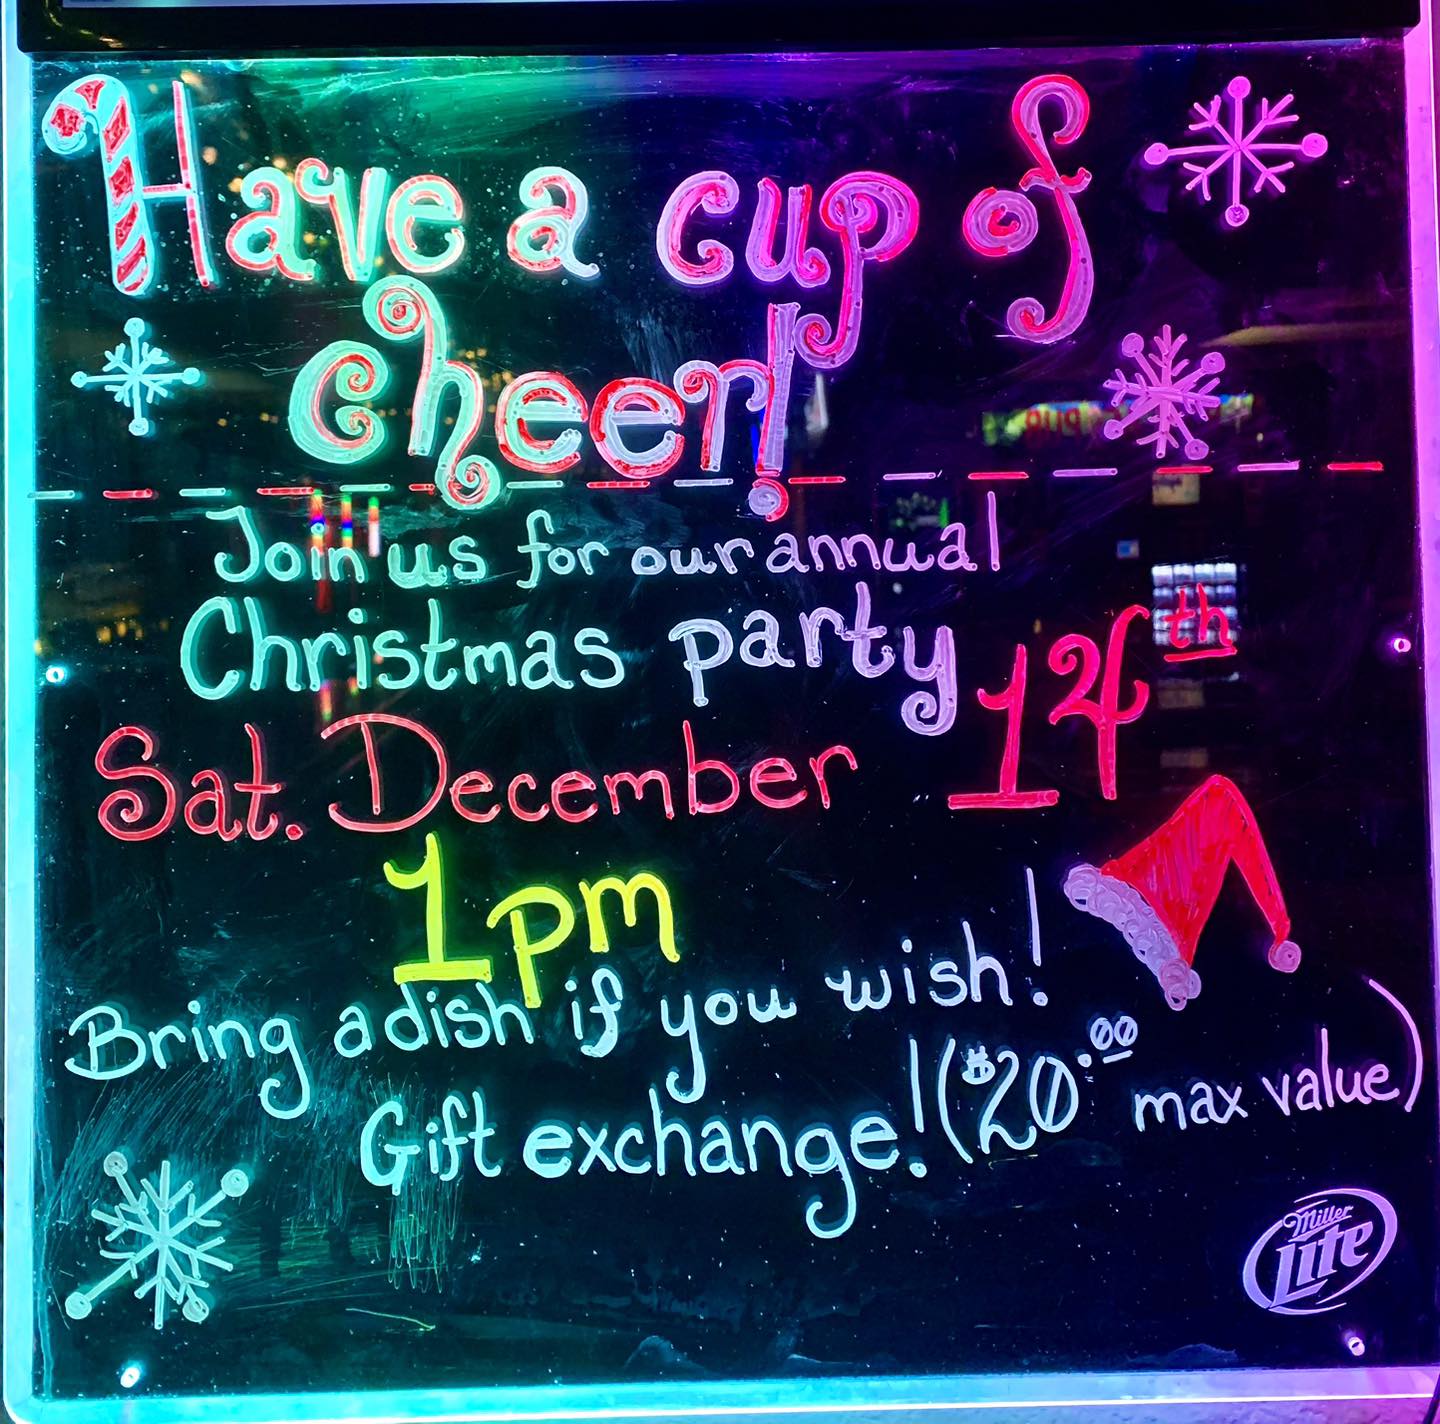 Have a cup of
cheer!
Join us for our annual
Christmas party
Sat. December 14th
1pm
Bring a dish if you wish!
Gift exchange! ($20.00 max value)
Miller
Lite